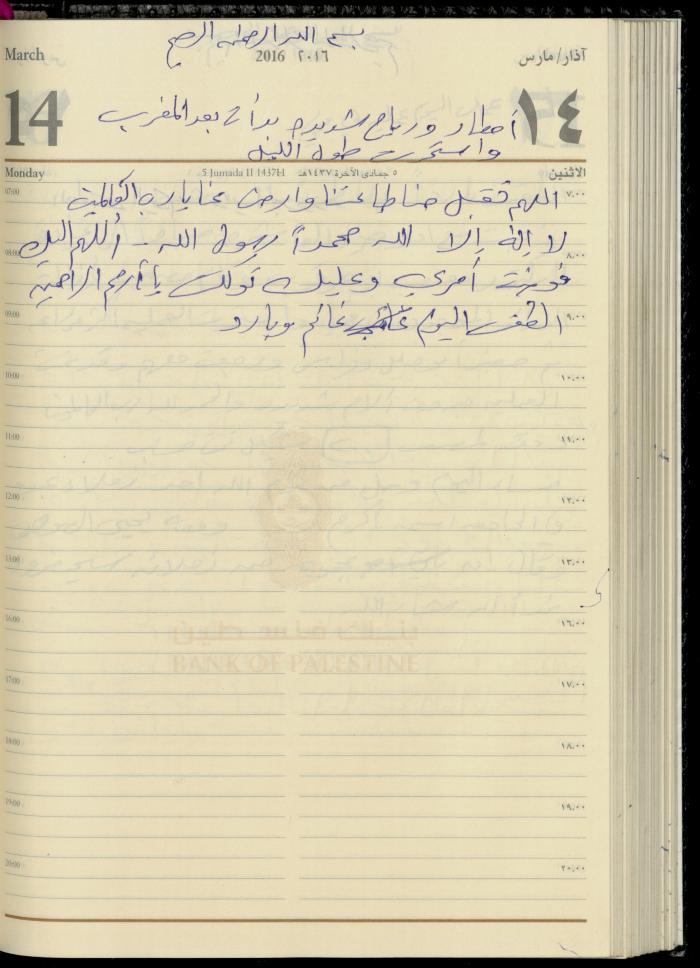 بسم الله الرحمن الرحيم
March
2016 ٢٠١٦
آذار/مارس
14
١٤
أمطار ورياح شديدة بدأت بعد المغرب
واستمرت طول الليل
Monday
5 Jumada II 1437H
٥ جمادى الآخرة ١٤٣٧هـ
الاثنين
07:00
٧:٠٠
اللهم تقبل منا طاعتنا وارض عنا يارب العالمين
لا إله إلا الله محمداً رسول الله - أللهم إليك
08:00
٨:٠٠
فوضت أمري وعليك توكلت يا أرحم الراحمين
09:00
٩:٠٠
الطقس اليوم غائم وبارد
10:00
١٠:٠٠
11:00
١١:٠٠
12:00
١٢:٠٠
13:00
١٣:٠٠
16:00
١٦:٠٠
بنك فلسطين
BANK OF PALESTINE
17:00
١٧:٠٠
18:00
١٨:٠٠
19:00
١٩:٠٠
20:00
٢٠:٠٠